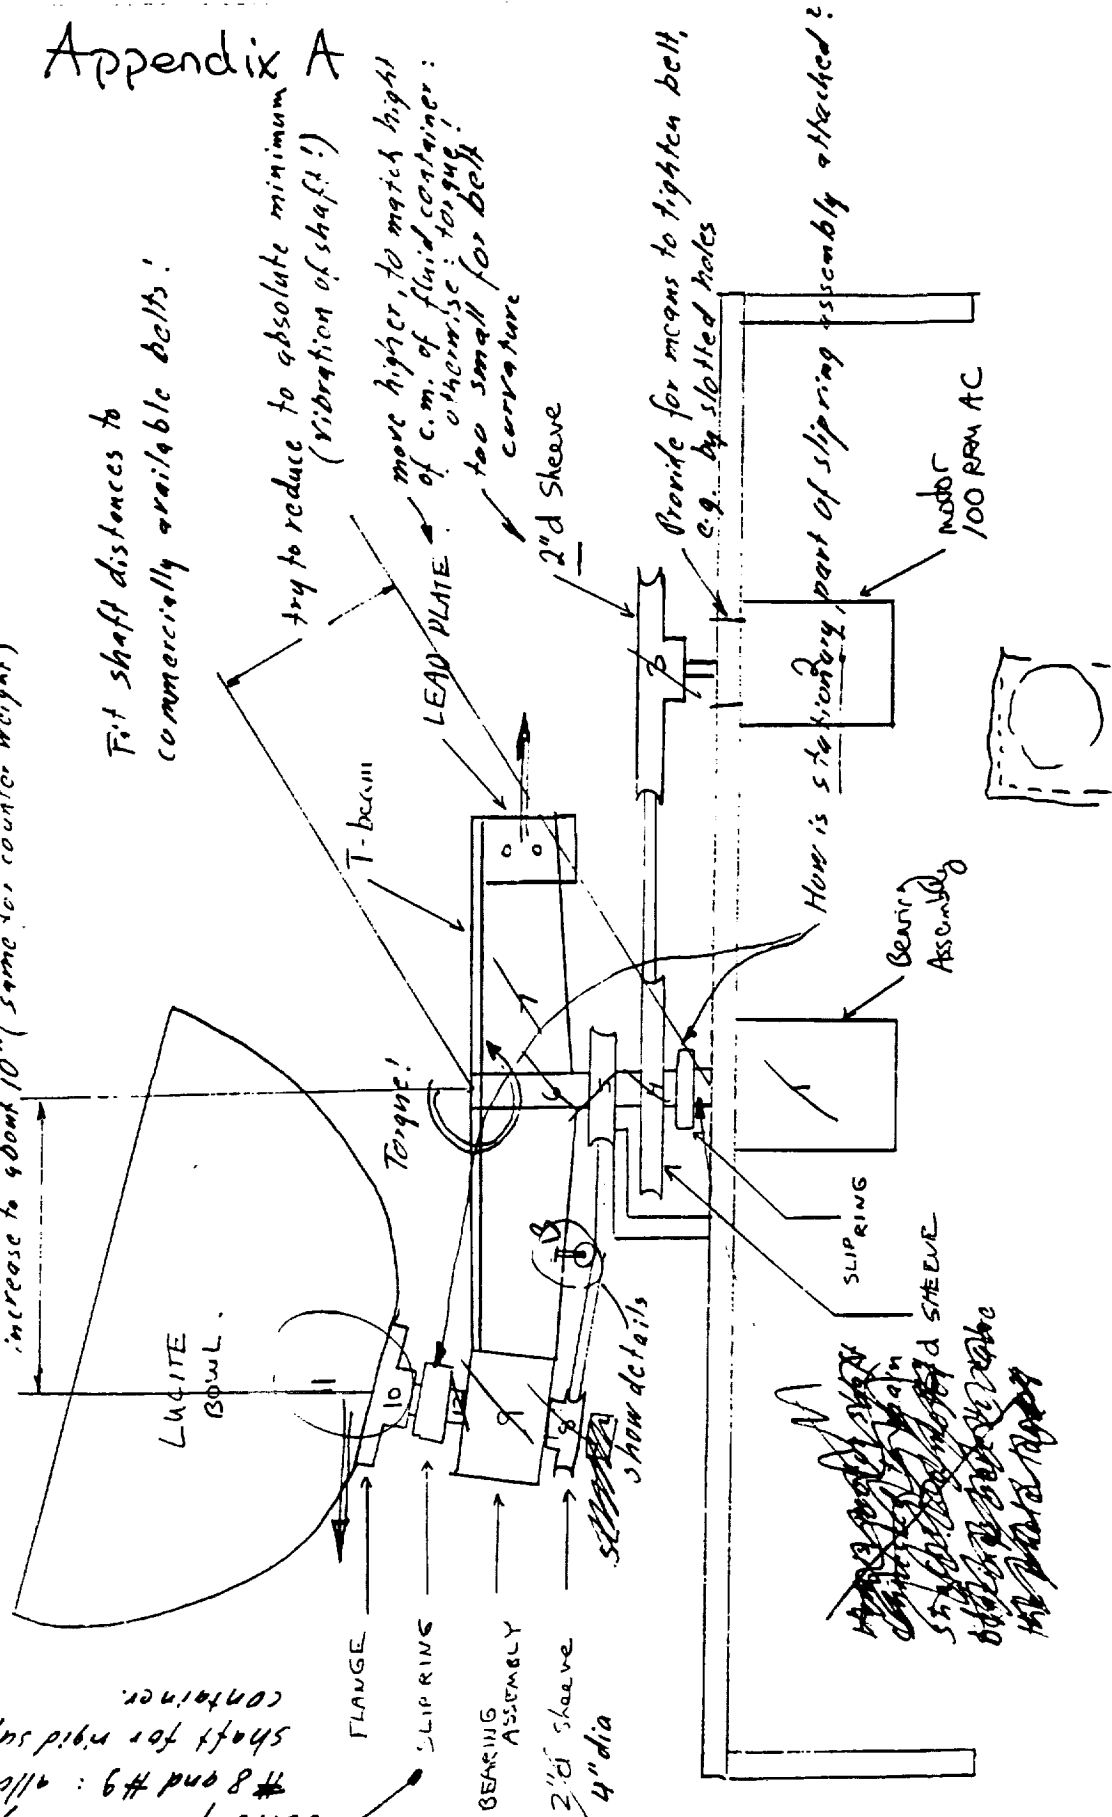 Appendix A
increase to about 10" (same for counter weight)
Fit shaft distances to
commercially available belts!
try to reduce to absolute minimum
(vibration of shaft!)
move higher, to match high
of c.m. of fluid container:
otherwise: torque!
too small for belt
curvature
Provide for means to tighten belt,
e.g. by slotted holes
How is stationary part of slipring assembly attached?
LUCITE
BOWL.
11
10
12
9
8
Torque!
T-beam
LEAD PLATE
2"d Sheeve
7
6
5
4
3
2
1
13
motor
100 RPM AC
Bearing
Assembly
SLIP RING
d SHEEVE
show details
FLANGE
SLIPRING
BEARING
ASSEMBLY
2"d sheeve
4" dia
#8 and #9:
shaft for rigid
container.